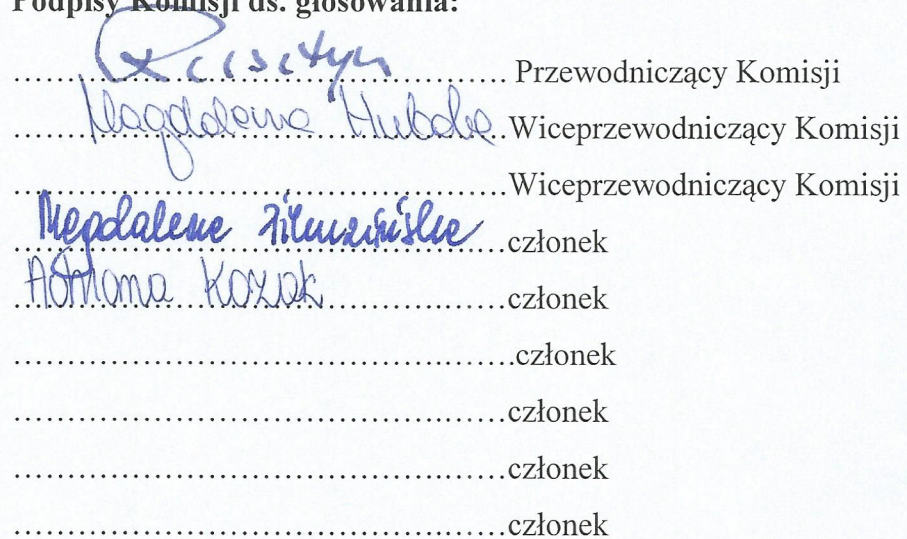 Podpisy Komisji ds. głosowania:
.......... Przewodniczący Komisji
Magdalena .......... Wiceprzewodniczący Komisji
.......... Wiceprzewodniczący Komisji
Magdalena .......... członek
Adriana Kozak .......... członek
.......... członek
.......... członek
.......... członek
.......... członek